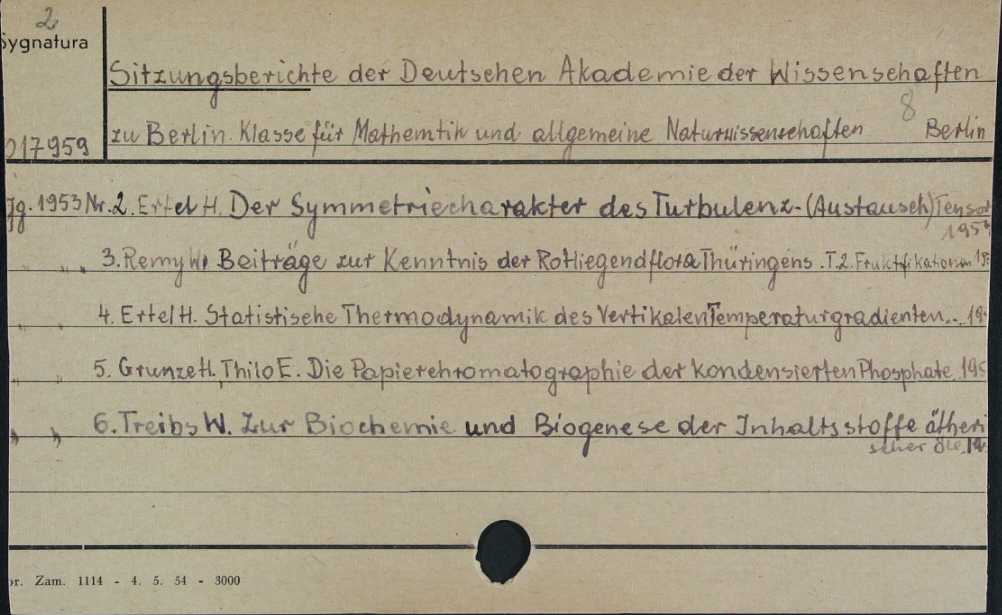 2
Sygnatura
Sitzungsberichte der Deutschen Akademie der Wissenschaften
8
017959
zu Berlin. Klasse für Mathemtik und allgemeine Naturwissenschaften Berlin
Jg. 1953 Nr. 2. Ertel H. Der Symmetriecharakter des Turbulenz-(Austausch)Tensor
1953
" " 3. Remy W. Beiträge zur Kenntnis der Rotliegendflora Thüringens. T.2. Fruktifikationen
" " 4. Ertel H. Statistische Thermodynamik des Vertikalen Temperaturgradienten..
" " 5. Grunze H., Thilo E. Die Papierchromatographie der kondensierten Phosphate. 195
" " 6. Treibs W. Zur Biochemie und Biogenese der Inhaltsstoffe ätheri
scher Öle. 19
or. Zam. 1114 - 4. 5. 54 - 3000